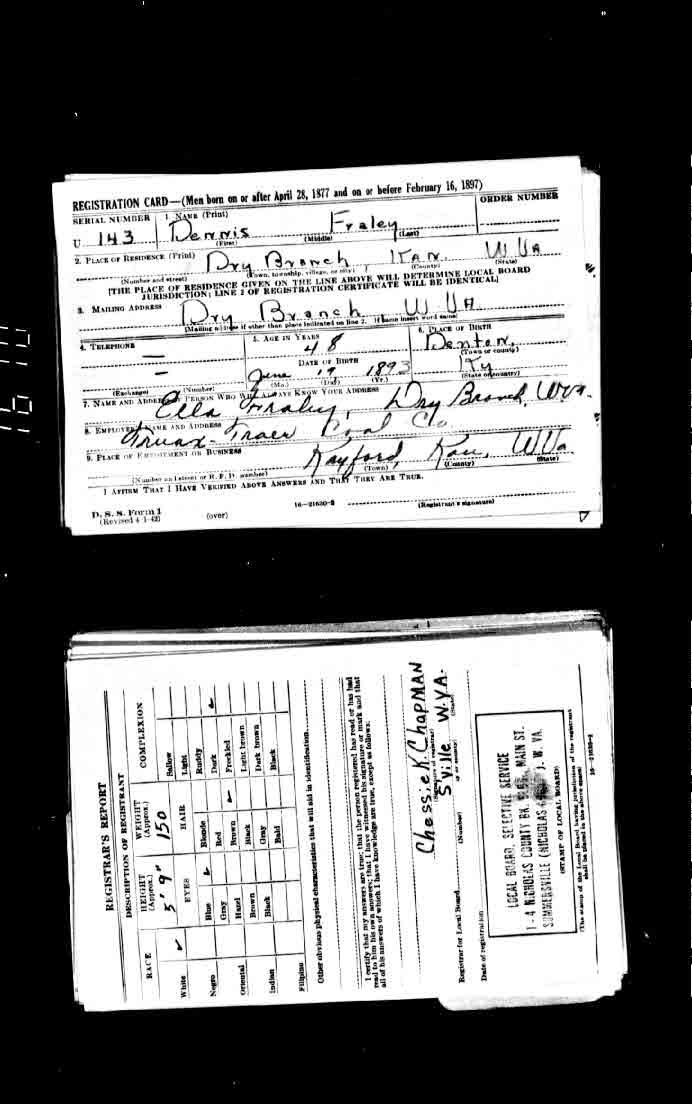 REGISTRATION CARD—(Men born on or after April 28, 1877 and on or before February 16, 1897)
SERIAL NUMBER 1. NAME (Print) ORDER NUMBER
U 143 Dennis Fraley
(First) (Middle) (Last)
2. PLACE OF RESIDENCE (Print)
Dry Branch, Kan. W VA
(Number and street) (Town, township, village, or city) (County) (State)
[THE PLACE OF RESIDENCE GIVEN ON THE LINE ABOVE WILL DETERMINE LOCAL BOARD
JURISDICTION; LINE 2 OF REGISTRATION CERTIFICATE WILL BE IDENTICAL]
3. MAILING ADDRESS
Dry Branch W VA
[Mailing address if other than place indicated on line 2. If same insert word same]
4. TELEPHONE 5. AGE IN YEARS 6. PLACE OF BIRTH
— 48 Denton,
(Town or county)
DATE OF BIRTH
— June 19 1893 Ky
(Exchange) (Number) (Mo.) (Day) (Yr.) (State or country)
7. NAME AND ADDRESS OF PERSON WHO WILL ALWAYS KNOW YOUR ADDRESS
Ella Fraley, Dry Branch, WVa.
8. EMPLOYER'S NAME AND ADDRESS
Truax-Traer Coal Co
9. PLACE OF EMPLOYMENT OR BUSINESS
Kayford, Kan, WVa
(Number and street or R. F. D. number) (Town) (County) (State)
I AFFIRM THAT I HAVE VERIFIED ABOVE ANSWERS AND THAT THEY ARE TRUE.
D. S. S. Form 1
(Revised 4-1-42) (over) 16—21630-2 (Registrant's signature)
REGISTRAR'S REPORT
DESCRIPTION OF REGISTRANT
RACE HEIGHT (Approx.) WEIGHT (Approx.) COMPLEXION
5' 9" 150
White ✓ EYES HAIR Sallow
Light
Negro Blue ✓ Blonde Ruddy
Gray Red Dark ✓
Oriental Hazel Brown ✓ Freckled
Brown Black Light brown
Indian Black Gray Dark brown
Bald Black
Filipino
Other obvious physical characteristics that will aid in identification
I certify that my answers are true; that the person registered has read or has had
read to him his own answers; that I have witnessed his signature or mark and that
all of his answers of which I have knowledge are true, except as follows:
Chessie K Chapman
(Signature of registrar)
Registrar for Local Board S'ville W.VA.
(Number) (City or county) (State)
Date of registration
LOCAL BOARD, SELECTIVE SERVICE
1-4 NICHOLAS COUNTY BK. MAIN ST.
SUMMERSVILLE (NICHOLAS W. VA.
(STAMP OF LOCAL BOARD)
(The stamp of the Local Board having jurisdiction of the registrant
shall be placed in the above space)
16—21630-2